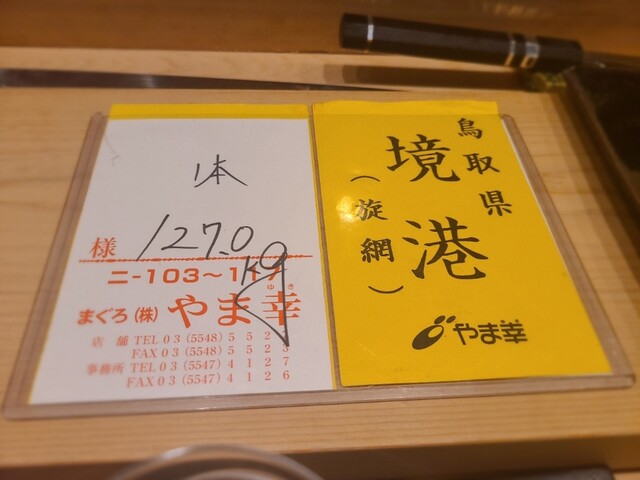 1本
様 1270 kg
ニ-103〜117
まぐろ(株)やま幸
ゆき
店舗 TEL 03 (5548) 5 5 2
FAX 03 (5548) 5 5 2
事務所 TEL 03 (5547) 4 1 2 7
FAX 03 (5547) 4 1 2 6
鳥取県
境港
(旋網)
やま幸